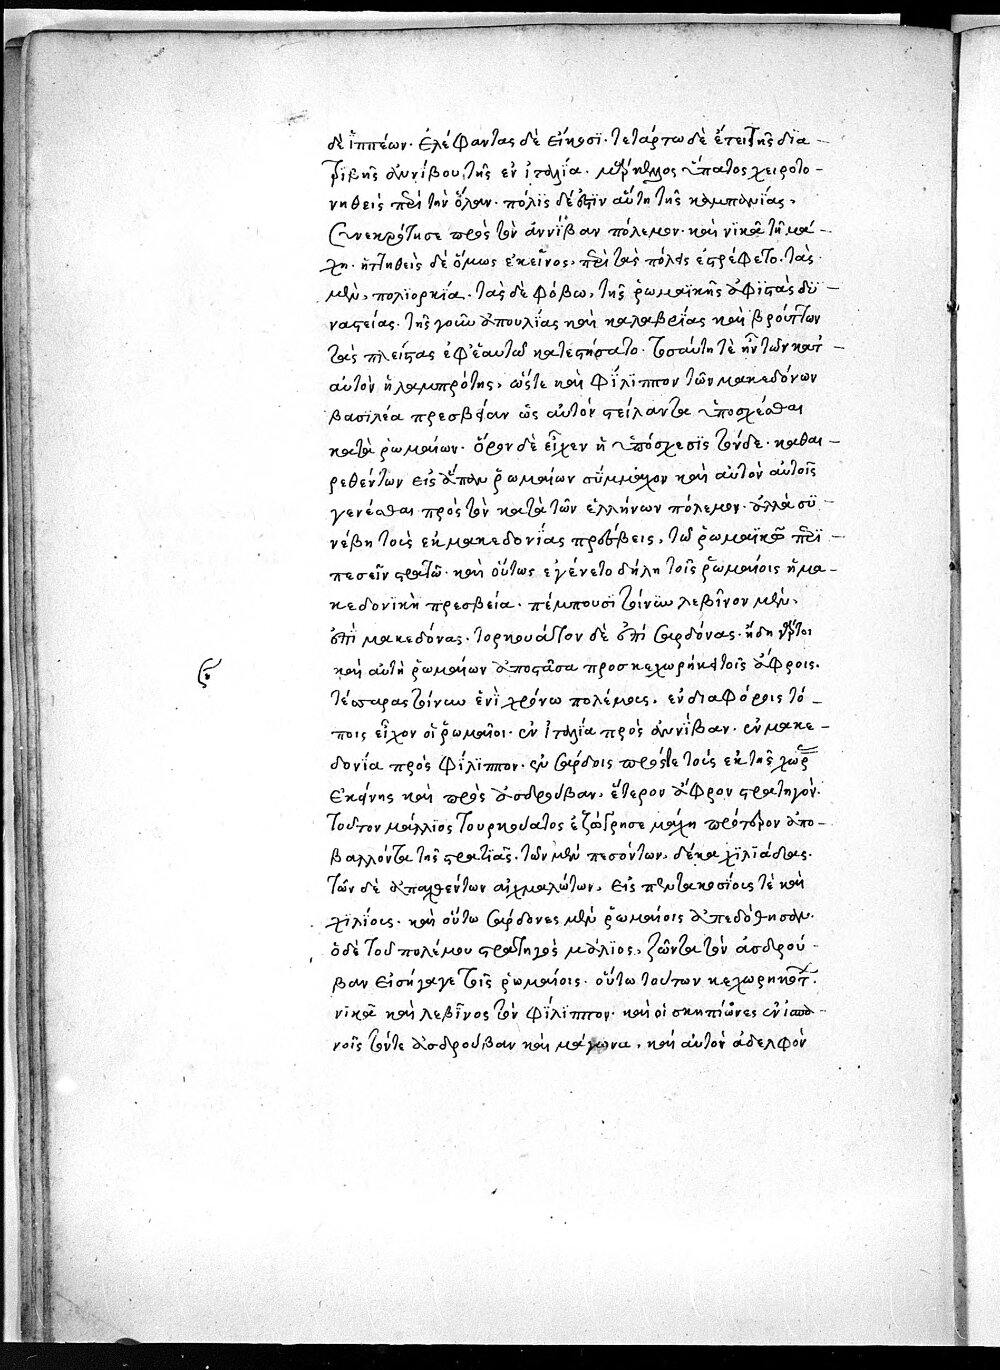 δὲ ἱππέων· ἐλέφαντας δὲ εἴκοσϊ· τετάρτω δὲ ἔτει τῆς δια-
τρϊβῆς ἀννίβου τῆς ἐν ἰταλία· μάρκελλος ὕπατος χειροτο-
νηθεὶς περὶ τὴν ὅλαν· πόλϊς δέ ἐστϊν αὕτη τῆς καμπανίας,
συνεκρότησε πρὸς τὸν ἀννίβαν πόλεμον· καὶ νϊκᾶ τῆ μά-
χη· ἡττηθεὶς δὲ ὅμως ἐκεῖνος, περὶ τὰς πόλεις ἐτρέφετο· τὰς
μὲν, πολϊορκία· τὰς δὲ φόβω, τῆς ῥωμαϊκῆς ἀφϊστὰς δυ-
ναστείας· τῆς γοῦν ἀπουλίας καὶ καλαβρίας καὶ βρουττίων
τὰς πλείστας ἐφ' ἑαυτῶ κατεστήσατο· τοσαύτη τὲ ἦν τῶν κατ'
αὐτὸν ἡ λαμπρότης, ὥστε καὶ φίλϊππον τῶν μακεδόνων
βασιλέα πρεσβείαν ὡς αὐτὸν στείλαντα ὑποσχέσθαι
κατὰ ῥωμαίων· ὅρον δὲ εἶχεν ἡ ὑπόσχεσϊς τόνδε· καθαι-
ρεθέντων εἰς ἅπαν ῥωμαίων σύμμαχον καὶ αὐτὸν αὐτοῖς
γενέσθαι πρὸς τὸν κατὰ τῶν ἑλλήνων πόλεμον· ἀλλὰ συ-
νέβη τοὺς ἐκ μακεδονίας πρέσβεις, τῶ ῥωμαϊκῶ περι-
πεσεῖν στρατῶ· καὶ οὕτως ἐγένετο δήλη τοῖς ῥωμαίοις ἡ μα-
κεδονϊκὴ πρεσβεία· πέμπουσϊ τοίνυν λεβῖνον μὲν,
ἐπὶ μακεδόνας· τορκουάττον δὲ ἐπὶ σαρδόνας· ἤδη γάρτοι
καὶ αὐτὴ ῥωμαίων ἀποστᾶσα προσκεχωρήκει τοῖς ἄφροις.
τέσσαρας τοίνυν ἑνὶ χρόνω πολέμους, ἐν διαφόροις τό-
ποις εἶχον οἱ ῥωμαῖοι· ἐν ἰταλία πρὸς ἀννίβαν· ἐν μακε-
δονία πρὸς φίλϊππον· ἐν σάρδοις πρόστε τοὺς ἐκ τῆς χώρας
ἐκείνης καὶ πρὸς ἀσδρούβαν, ἕτερον ἄφρον στρατηγόν·
τοῦτον μάλλϊος τουρκουᾶτος ἐζώγρησε μάχη πρότερον ἀπο-
βαλλόντα τῆς στρατιᾶς, τῶν μὲν πεσόντων, δέκα χϊλϊάδας.
τῶν δὲ ἀπαχθέντων αἰχμαλώτων, εἰς πεντακοσίους τὲ καὶ
χϊλίους· καὶ οὕτω σάρδονες μὲν ῥωμαίοις ἀπεδόθησαν·
ὁ δὲ τοῦ πολέμου στρατηγὸς μάλϊος, ζῶντα τὸν ἀσδρού-
βαν εἰσήγαγε τοῖς ῥωμαίοις· οὕτω τούτων κεχωρηκότων.
νϊκᾶ καὶ λεβῖνος τὸν φίλϊππον· καὶ οἱ σκηπίωνες ἐν ἱσπα-
νοῖς τόντε ἀσδρούβαν καὶ μάγωνα, καὶ αὐτὸν ἀδελφὸν